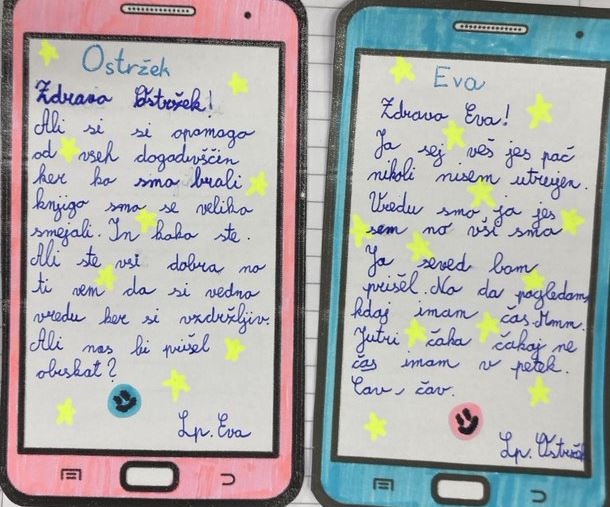 Ostržek
Zdravo Ostržek!
Ali si si opomogo
od vseh dogodivščin
ker ko smo brali
knjigo smo se veliko
smejali. In kako ste.
Ali ste vsi dobro no
ti vem da si vedno
vredu ker si vzdržljiv.
Ali nas bi prišel
obiskat?
Lp. Eva
Eva
Zdravo Eva!
Ja sej veš jes pač
nikoli nisem utrujen.
Vredu smo ja jes
sem no vsi smo
Ja seved bom
prišel. No da pogledam
kdaj imam čas. Mmm.
Jutri čaka čakaj ne
čas imam v petek.
Čav, čav.
Lp. Ostržek